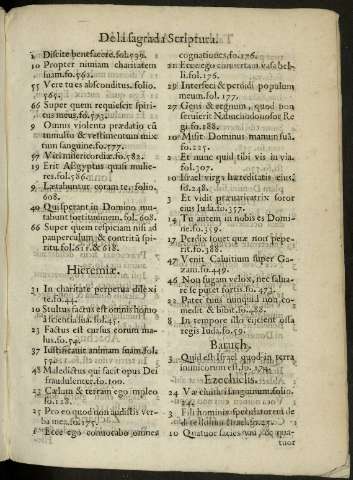 De la sagrada Scriptura.
1 Discite benefacere. fol. 539.
10 Propter nimiam charitatem
suam. fo. 562.
55 Vere tu es absconditus. folio.
565.
66 Super quem requiescit spiri-
tus meus. fo. 573.
9 Omnis violenta prædatio cũ
tumultu & vestimentum mix
tum sanguine. fo. 577.
57 Viri misericordiæ. fo. 582.
19 Erit Ægyptus quasi mulie-
res. fol. 586.
9 Lætabuntur coram te. folio.
608.
40 Qui sperant in Domino mu-
tabunt fortitudinem. fol. 608.
66 Super quem respiciam nisi ad
pauperculum & contritũ spi-
ritu. fol. 611. & 618.
Hieremiæ.
31 In charitate perpetua dilexi
te. fo. 44.
10 Stultus factus est omnis homo
a scientia sua. fol. 45.
23 Factus est cursus eorum ma-
lus. fo. 54.
37 Iustificavit animam suam. fol.
57.
48 Maledictus qui facit opus Dei
fraudulenter. fo. 100.
23 Cælum & terram ego impleo
fo. 128.
25 Pro eo quod non audistis ver-
ba mea. fo. 175.
1 Ecce ego convocabo omnes
cognationes. fo. 176.
21 Ecce ego convertam vasa bel-
li. fol. 176.
29 Interfeci & perdidi populum
meum. fol. 177.
27 Gens & regnum, quod non
servierit Nabuchodonosor Re
gi. fo. 188.
10 Misit Dominus manum suã.
fo. 225.
2 Et nunc quid tibi vis in via.
fol. 307.
10 Israel virga hæreditatis eius.
fo. 248.
3 Et vidit prævaricatrix soror
eius Iuda. fo. 357.
14 Tu autem in nobis es Domi-
ne. fo. 359.
17 Perdix fovet quæ non pepe-
rit. fo. 388.
47 Venit Calvitium super Ga-
zam. fo. 449.
46 Non fugiat velox, nec salva-
re se putet fortis. fo. 473.
22 Pater tuus nunquid non co-
medit & bibit. fo. 488.
8 In tempore illo eijcient ossa
regis Iuda. fo. 59.
Baruch.
3 Quid est Israel quod in terra
inimicorum es. fo. 174.
Ezechielis.
24 Væ civitati sanguinum. folio.
3 Fili hominis speculatorem de
10 Quatuor facies uni, & qua-
tuor